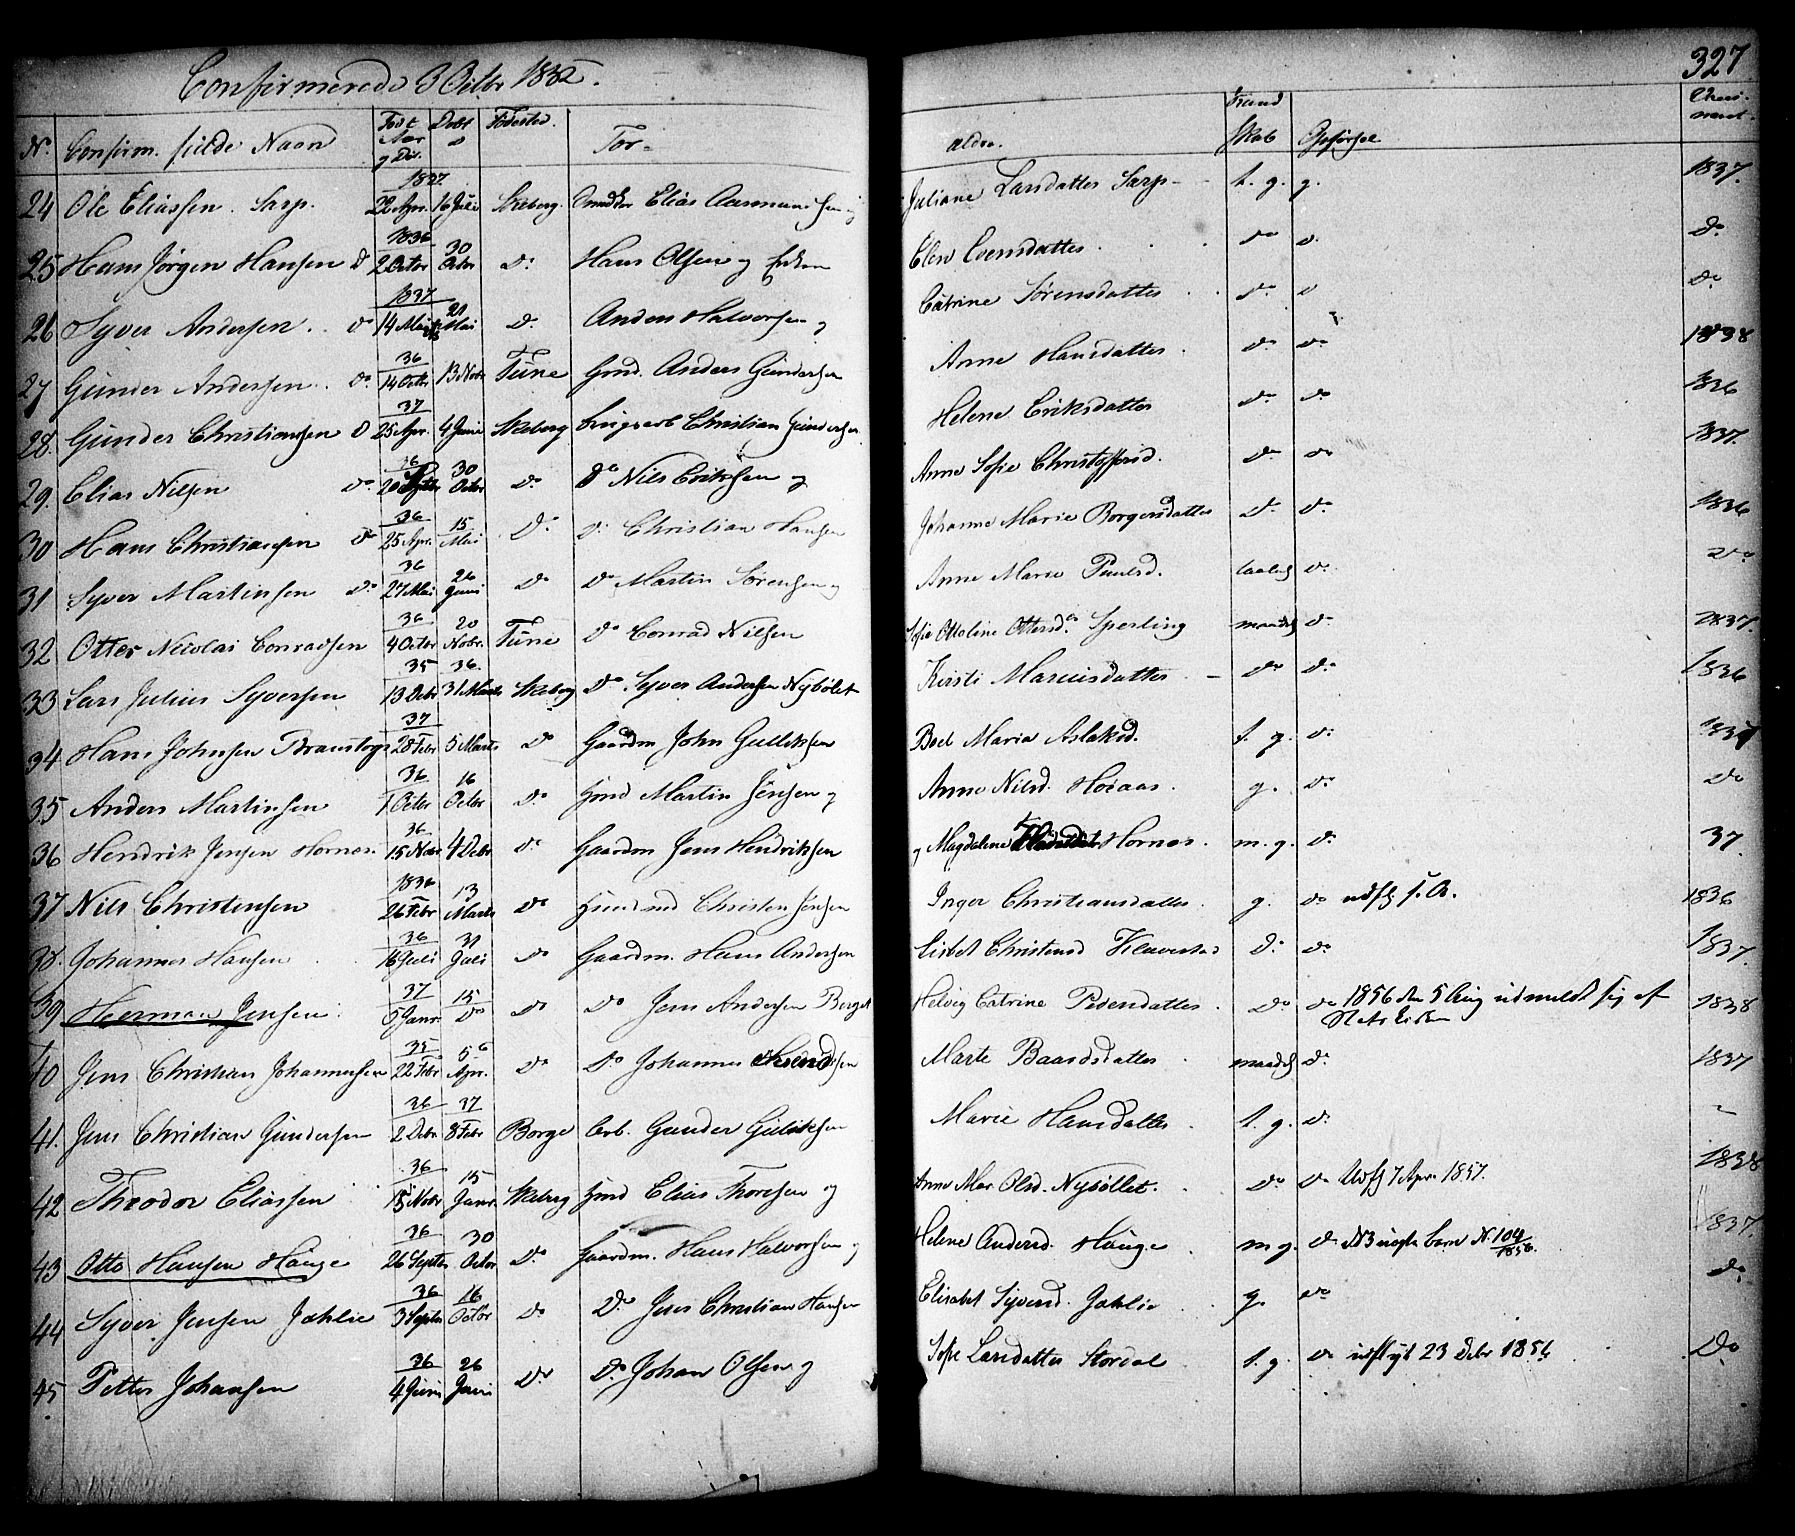 327
Confirmerede 3 Octbr 1852.
Nr. Confirm. fulde Navn Født Aar g Dat. Døbt Fødested. For- ældre. Kund Skab Opførsel
24 Ole Eliassen. Sarp. 1837 22 Apr. 16 Juli Skeberg. Elias Aasmundsen Juliane Larsdatter Sarp - t. g. g. 1837.
25 Hans Jørgen Hansen D 1836 2 Octbr 30 Octbr Do Hans Olsen og Elen Evensdatter. do do Do
26 Syver Andersen. Do 1837 14 Mai 21 Mai Do Anders Halvorsen og Catrine Sørensdatter do do Do
27 Gunder Andersen. Do 36 14 Octbr 13 Nobr Tune Gmd. Anders Gundersen Anne Hansdatter do do 1838
28. Gunder Christiansen D 37 25 Apr. 4 Juni Skeberg Christian Gundersen Helene Eriksdatter do do 1836
29. Elias Nilsen Do 36 20 30 Octbr Do Do Nils Eriksen og Anne Sofie Christoffersd. do do 1837.
30 Hans Christiansen Do 36 25 Apr. 15 Mai Do Do Christian Hansen Johanne Marie Borgersdatter do do 1836
31 Syver Martinsen Do 36 27 Mai 26 Juni Do Do Martin Sørensen og Anne Marie Paulsd. do Do
32 Otter Nicolai Conradsen 36 4 Octbr 20 Nobr. Tune Do Conrad Nilsen Sofie Ottoline Ottersd. Sperling maadel do 1837.
33 Lars Julius Syversen 35 13 Debr 36. 31 Marts Skeberg Do Syver Andersen Nybølet Kirsti Marcusdatter - do do 1836
34 Hans Johnsen 37 28 Febr 5 Marts Do Gaardm John Gulliksen Boel Maria Aslaksd. t. g. do
35 Anders Martinsen 36 1 Octbr 16 Octbr Do Hmd Martin Jensen og Anne Nilsd. g. do Do
36 Hendrik Jensen Hornes. 36 15 Nobr 4 Debr Do Gaardm Jens Hendriksen og Magdalene Hornes. m. g. do 37.
37 Nils Christensen 1836 26 Febr 13 Marts Do Christen Jensen Inger Christiansdatter. g. do 1836
38. Johannes Hansen 36 16 Juli 31 Juli Do Gaardm. Hans Andersen Lisbet Christensd Klavestad Do do 1837.
39 Herman Jensen. 37 5 Janr. 15 Do Do Do Jens Andersen Berget Helvig Catrine Pedersdatter. Do do 1856 den 5 Aug udmeldt sig af Statskirken 1838
40 Jens Christian Johannesen 35 22 Febr 56 Apr. Do Do Johannes Marte Baardsdatter maadel do 1837
41. Jens Christian Gundersen 36 2 Debr 37 8 Febr Borge Arb. Gunder Gulliksen Marie Hansdatter. t. g. do
42 Theodor Eliassen 36 15 Nobr 15 Janr. Skeberg Hmd Elias Thoresen og Anne Mar. Olsd. Nybøllet. Do do Udfl 7 Apr. 1857. 1838
43 Otto Hansen Hauge 36 26 Septbr 30 Octbr Do Gaardm. Hans Halvorsen og Helene Andersd. Hauge m g. do NB No. 104/1856. 1837.
44 Syver Jensen Jæhlie 36 3 Septbr 16 Octbr Do Do Jens Christian Hansen Elisabet Syversd. Jahlie g. do Do
45 Petter Johansen 36 4 Juni 26 Juni Do Do Johan Olsen og Sofie Larsdatter Stordal t. g. do udflyt 23 Debr 1856 Do